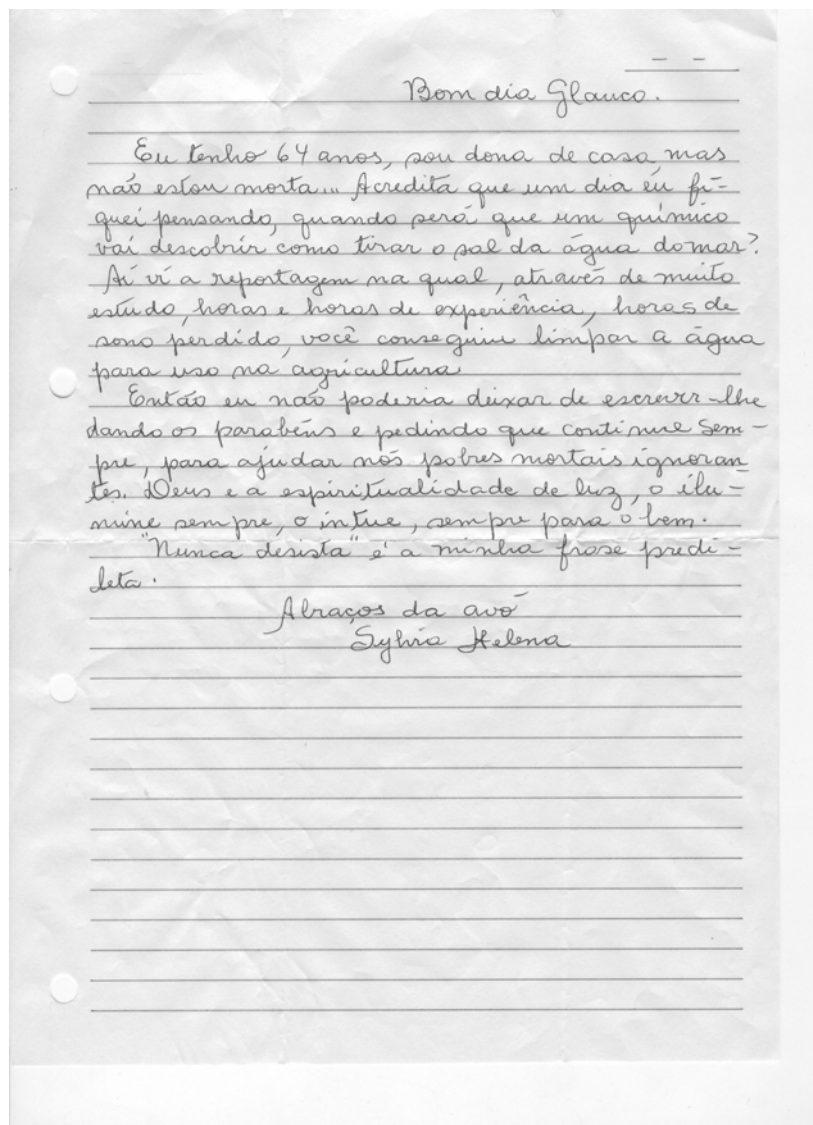 - -
Bom dia Glauco.
Eu tenho 64 anos, sou dona de casa mas
não estou morta... Acredita que um dia eu fi-
quei pensando, quando será que um químico
vai descobrir como tirar o sal da água do mar?
Aí vi a reportagem na qual, através de muito
estudo, horas e horas de experiência, horas de
sono perdido, você conseguiu limpar a água
para uso na agricultura.
Então eu não poderia deixar de escrever-lhe
dando os parabéns e pedindo que continue sem-
pre, para ajudar nós pobres mortais ignoran
tes. Deus e a espiritualidade de luz, o ilu-
mine sempre, o intue, sempre para o bem.
"Nunca desista" é a minha frase predi-
leta.
Abraços da avó
Sylvia Helena